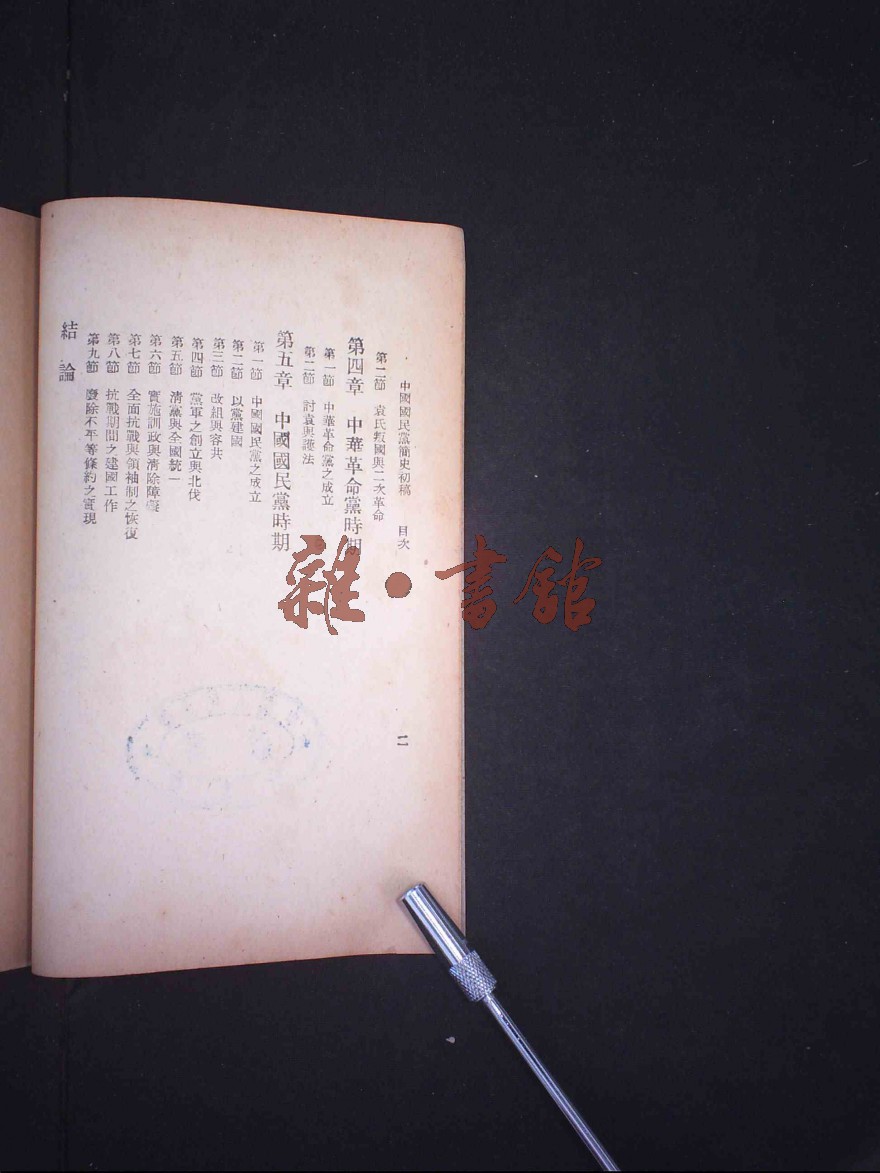 中國國民黨簡史初稿 目次
二
第二節 袁氏叛國與二次革命
第四章 中華革命黨時期
第一節 中華革命黨之成立
第二節 討袁與護法
第五章 中國國民黨時期
第一節 中國國民黨之成立
第二節 以黨建國
第三節 改組與容共
第四節 黨軍之創立與北伐
第五節 清黨與全國統一
第六節 實施訓政與清除障礙
第七節 全面抗戰與領袖制之恢復
第八節 抗戰期間之建國工作
第九節 廢除不平等條約之實現
結論
雜·書館